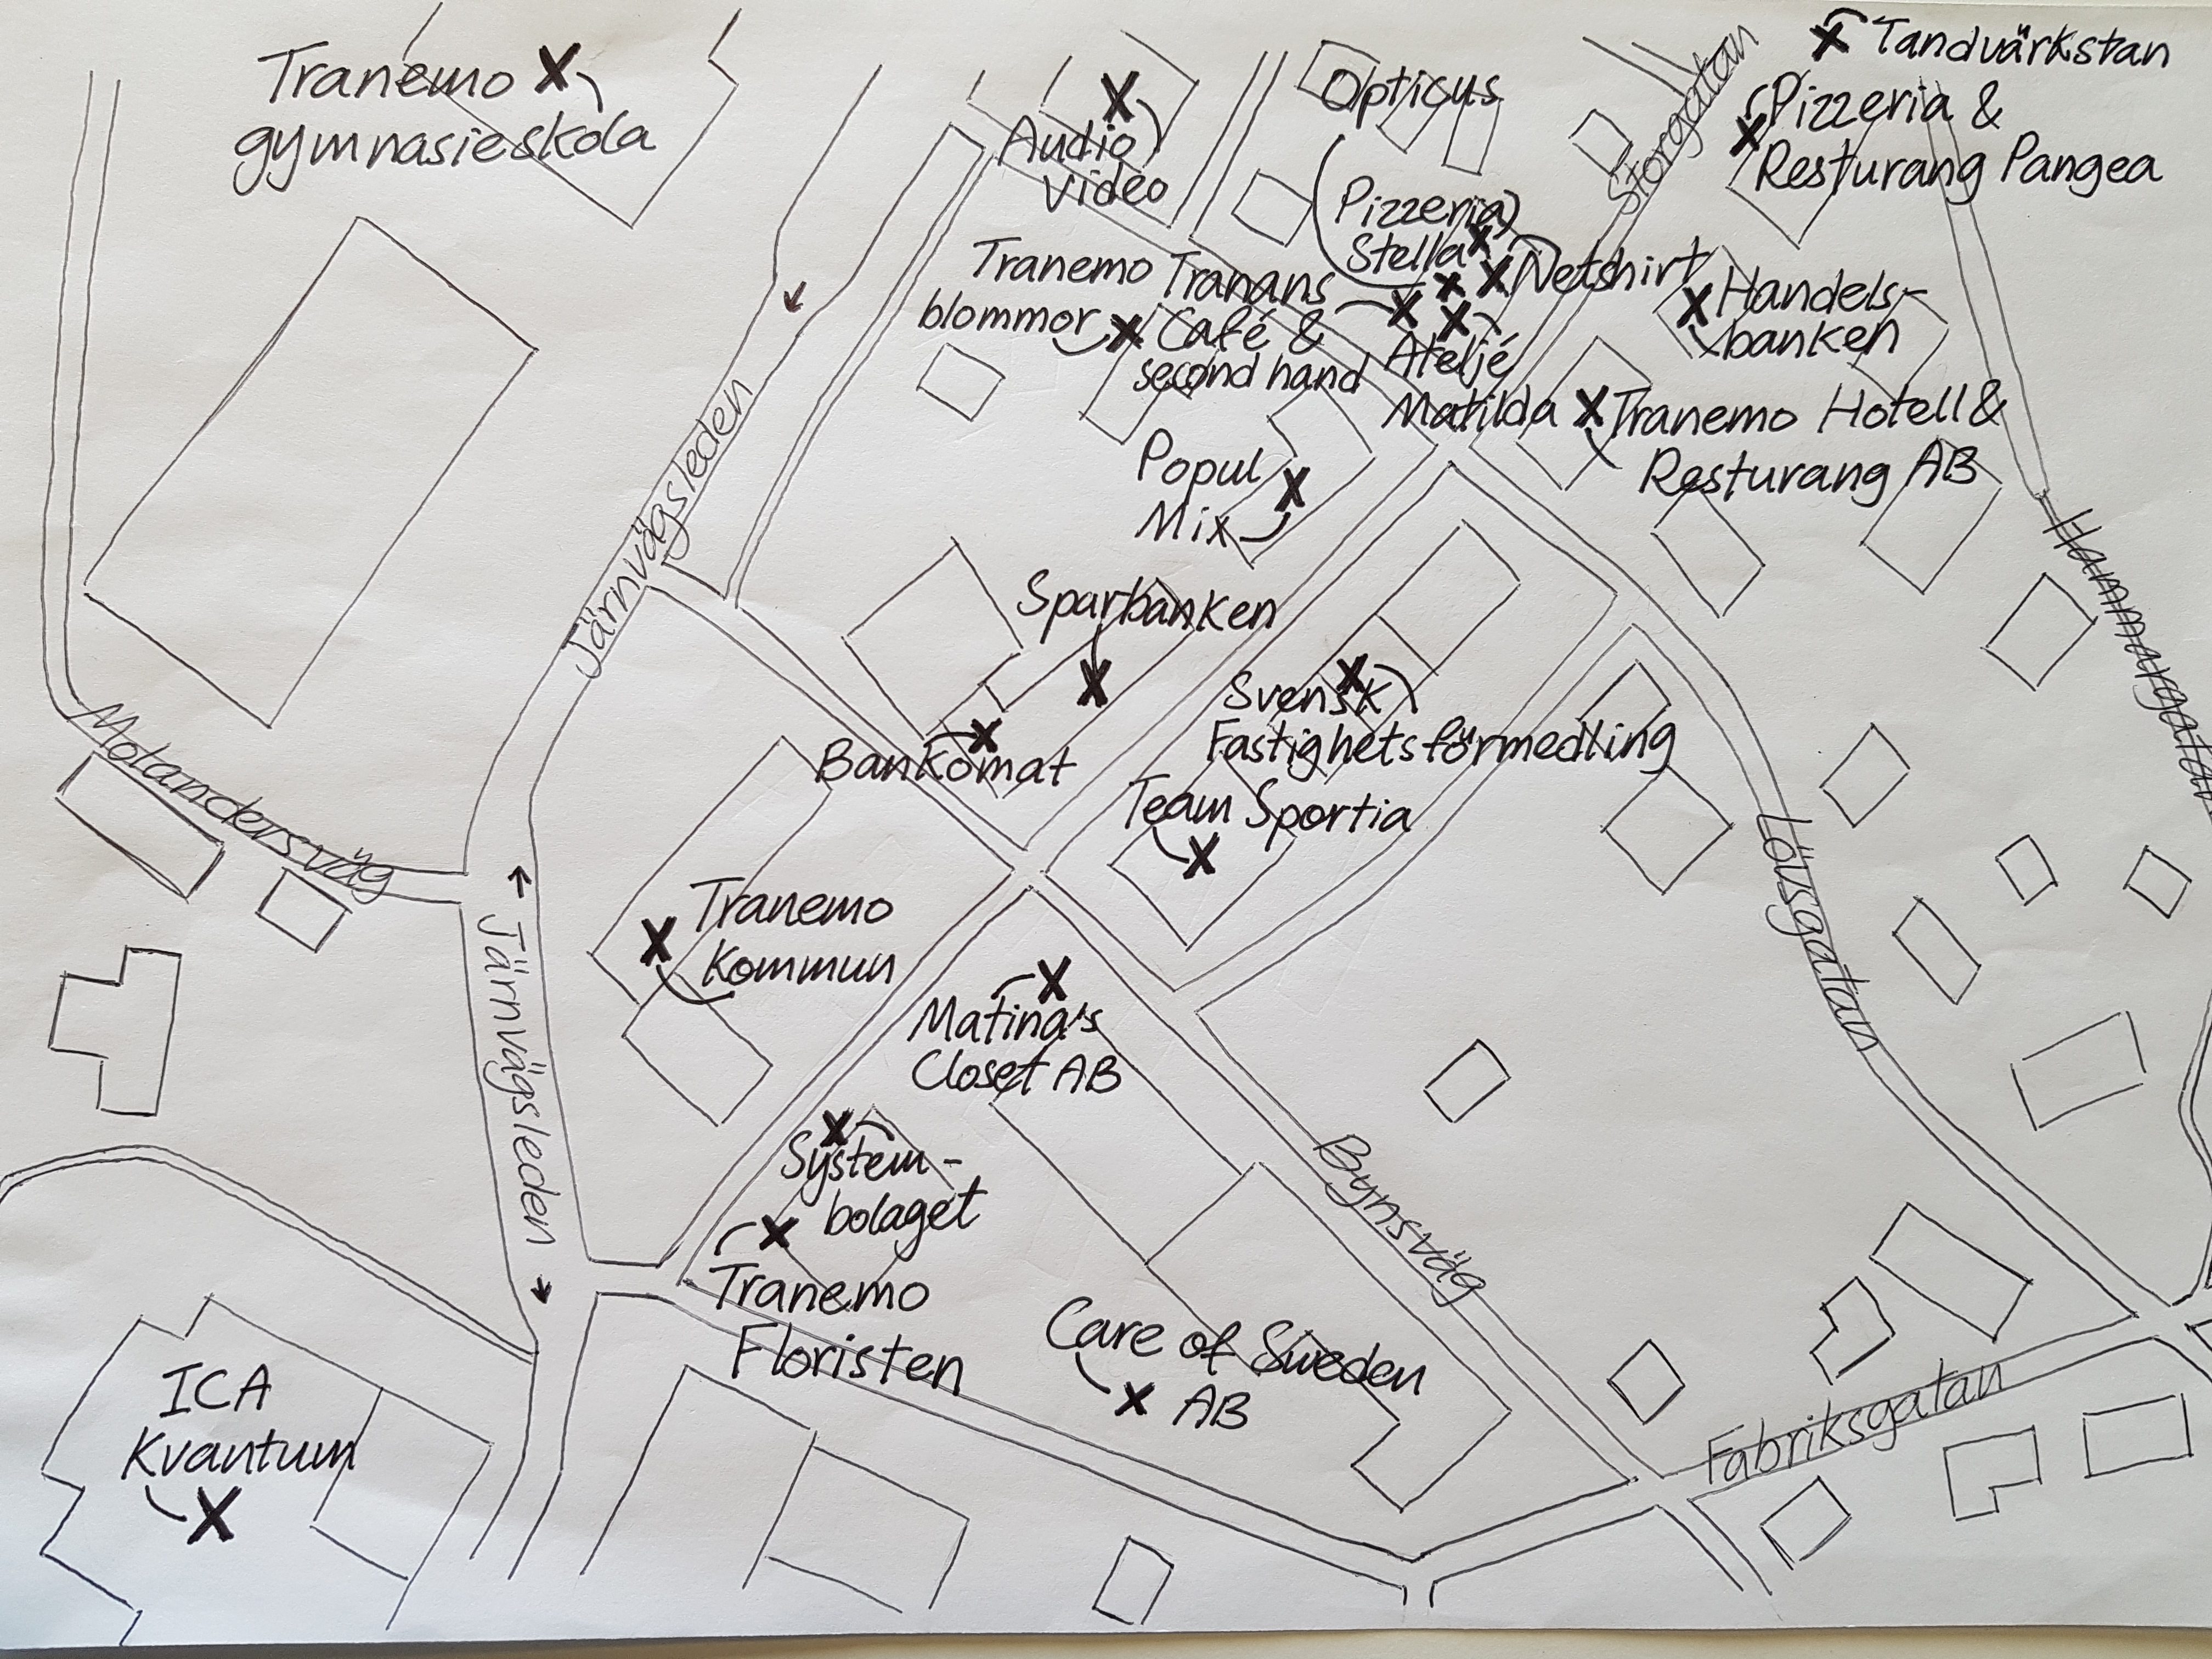 Tranemo
gymnasieskola
Audio
video
Opticus
Storgatan
Tandvärkstan
Pizzeria &
Resturang Pangea
Pizzeria
Stella
Netshirt
Tranemo
blommor
Tranans
Café &
second hand
Ateljé
Matilda
Handels-
banken
Tranemo Hotell &
Resturang AB
Järnvägsleden
Popul
Mix
Hammargatan
Sparbanken
Svensk
Fastighetsförmedling
Bankomat
Team Sportia
Molandersväg
Lövsgatan
Tranemo
Kommun
Järnvägsleden
Matina's
Closet AB
System-
bolaget
Bynsväg
Tranemo
Floristen
Care of Sweden
AB
ICA
Kvantum
Fabriksgatan